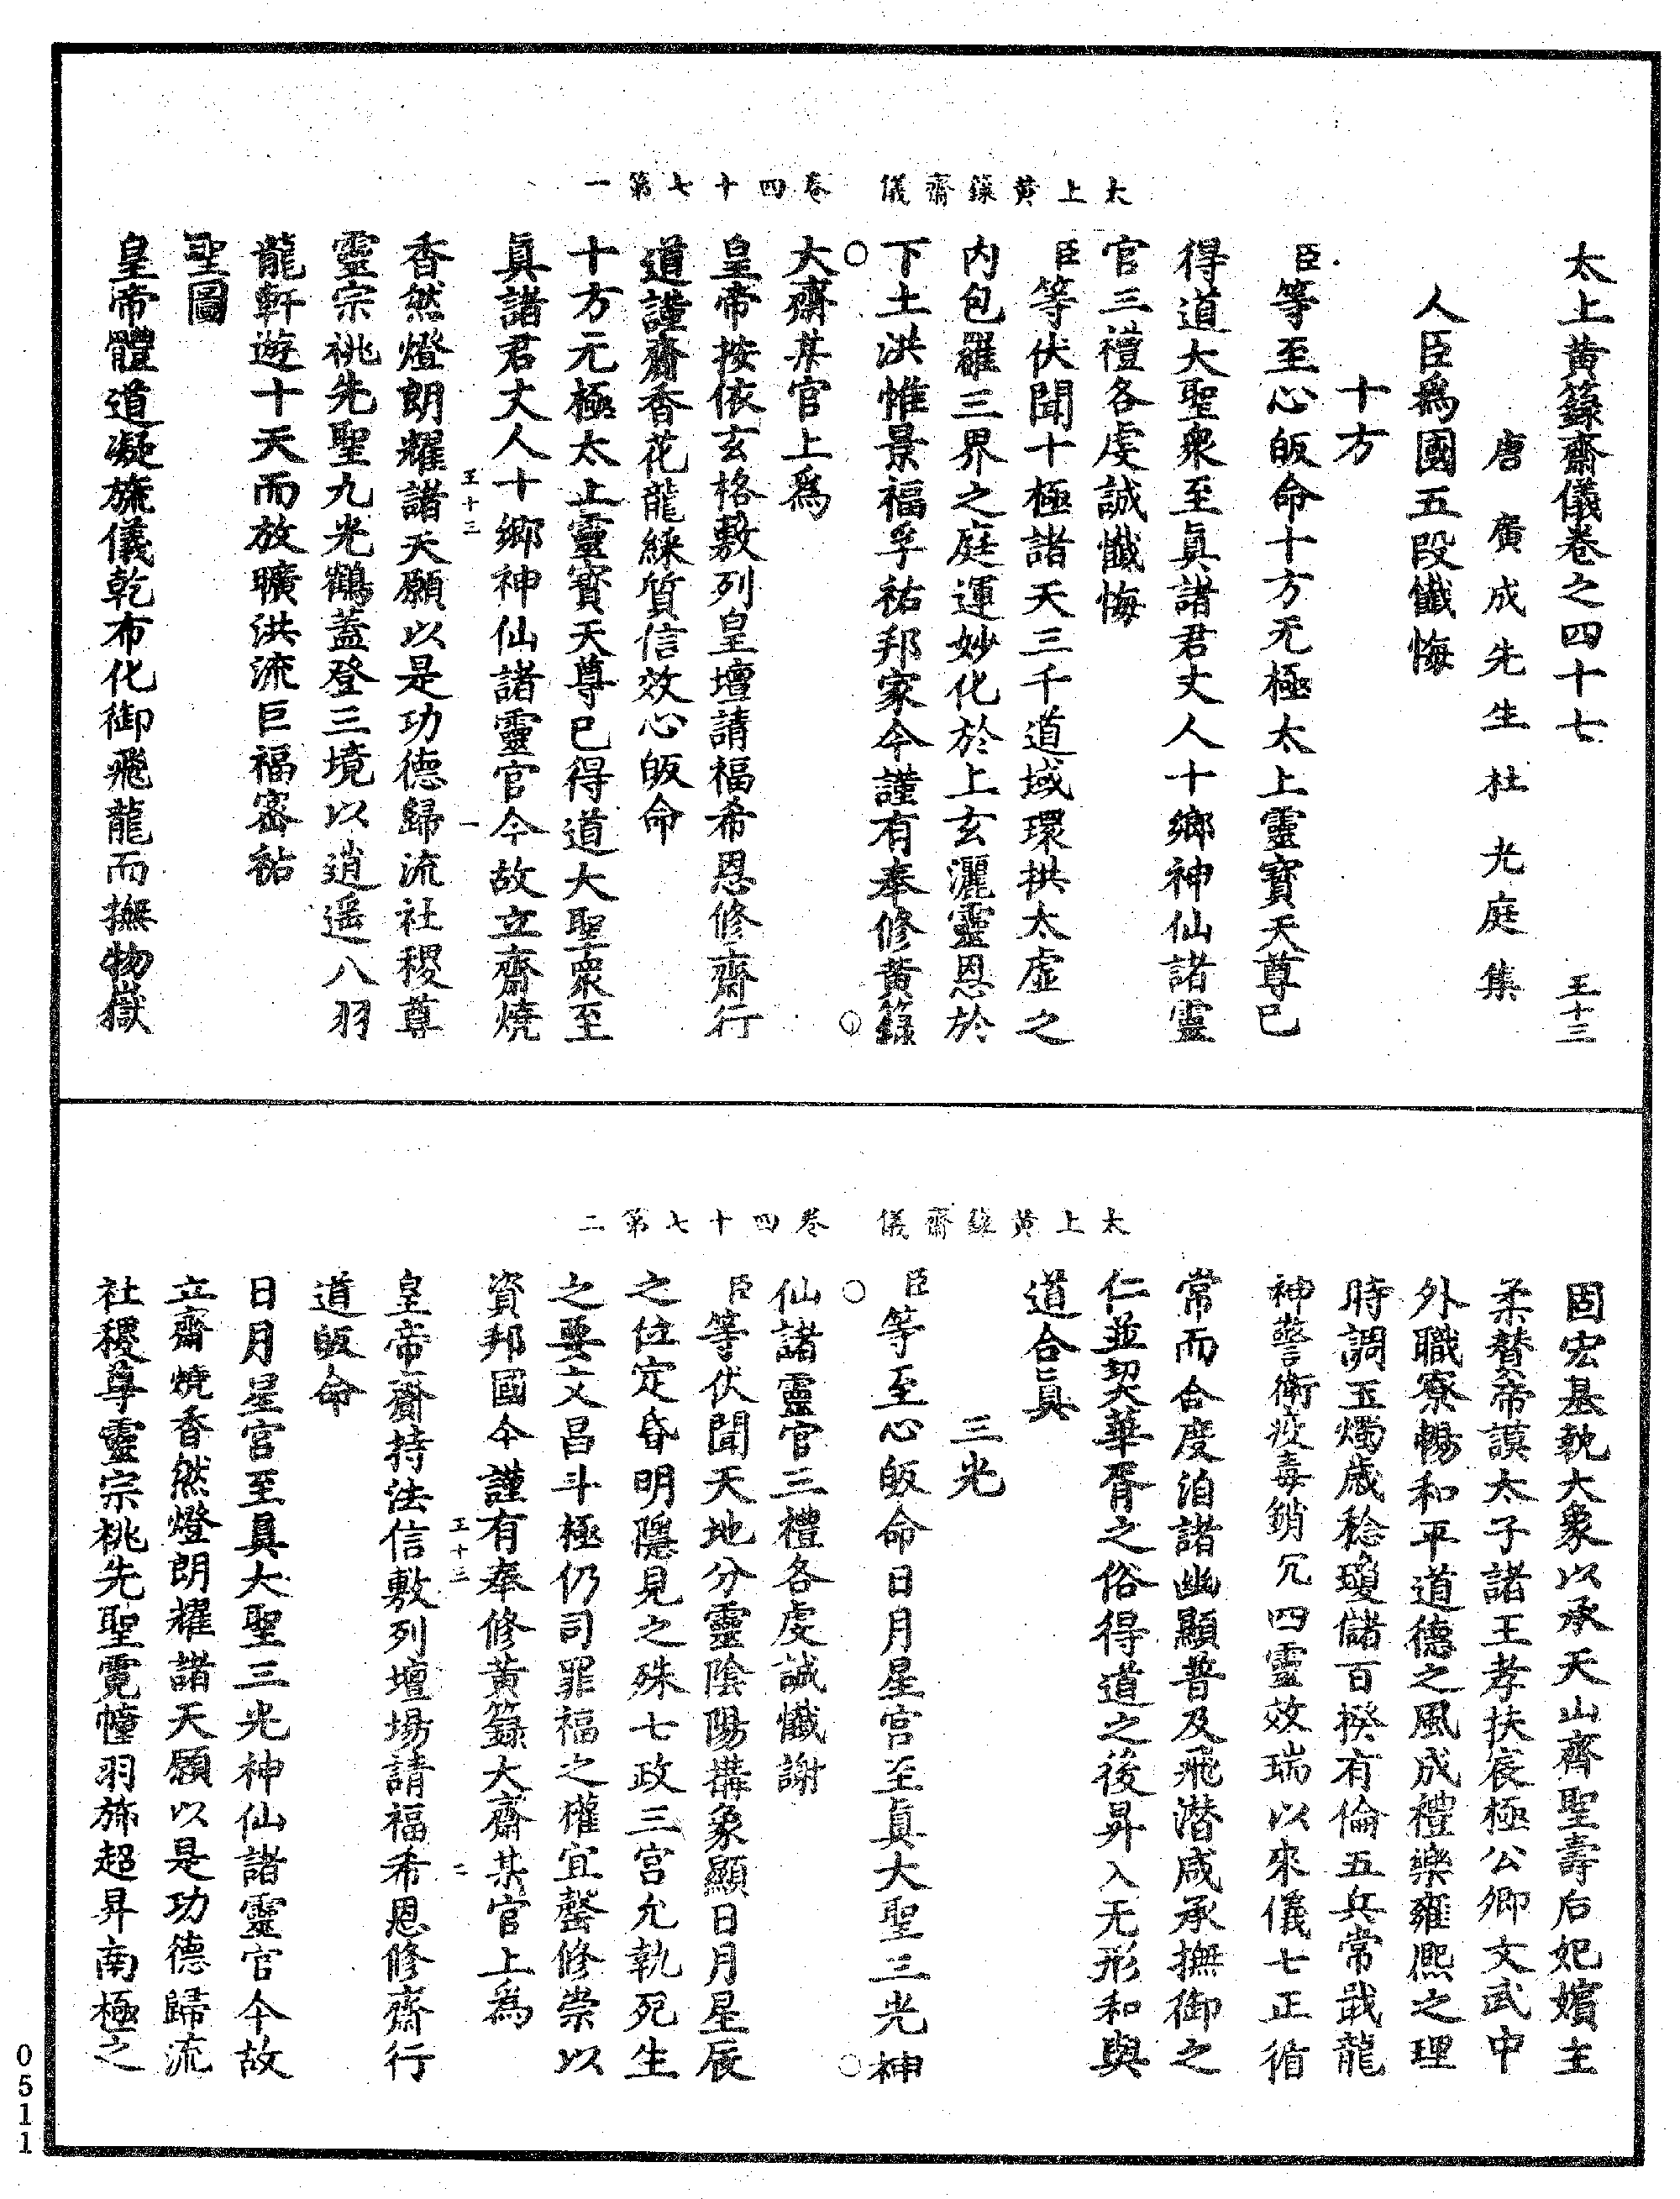 太上黃籙齋儀　卷四十七第一
太上黃籙齋儀卷之四十七　王十三
唐廣成先生杜光庭集
人臣爲國五段懺悔
十方
臣等至心皈命十方无極太上靈寶天尊已
得道大聖衆至眞諸君丈人十鄉神仙諸靈
官三禮各虔誠懺悔
臣等伏聞十極諸天三千道域環拱太虛之
内包羅三界之庭運妙化於上玄灑靈恩於
下土洪惟景福孚祐邦家今謹有奉修黃籙
大齋某官上爲
皇帝按依玄格敷列皇壇請福希恩修齋行
道謹齎香花龍綵質信效心皈命
十方元極太上靈寶天尊已得道大聖衆至
眞諸君丈人十鄉神仙諸靈官今故立齋燒
王十三　一
香然燈朗耀諸天願以是功德歸流社稷尊
靈宗祧先聖九光鶴蓋登三境以逍遥八羽
龍軒遊十天而放曠洪流巨福密祐
聖圖
皇帝體道凝旒儀乾布化御飛龍而撫物嶽
太上黃籙齋儀　卷四十七第二
固宏基執大象以承天山齊聖壽后妃嬪主
柔賛帝謨太子諸王孝扶宸極公卿文武中
外職寮暢和平道德之風成禮樂雍熙之理
時調玉燭歲稔瓊儲百揆有倫五兵常戢龍
神警衛疫毒銷冗四靈效瑞以來儀七正循
常而合度洎諸幽顯普及飛潜咸承撫御之
仁並契華胥之俗得道之後昇入无形和與
道合眞
三光
臣等至心皈命日月星宮至眞大聖三光神
仙諸靈官三禮各虔誠懺謝
臣等伏聞天地分靈陰陽搆象顯日月星辰
之位定昏明隱見之殊七政三宮允執死生
之要文昌斗極仍司罪福之權宜罄修崇以
資邦國今謹有奉修黃籙大齋某官上爲
王十三　二
皇帝齎持法信敷列壇場請福希恩修齋行
道皈命
日月星宮至眞大聖三光神仙諸靈官今故
立齋燒香然燈朗耀諸天願以是功德歸流
社稷尊靈宗祧先聖霓幢羽斾超昇南極之
0511